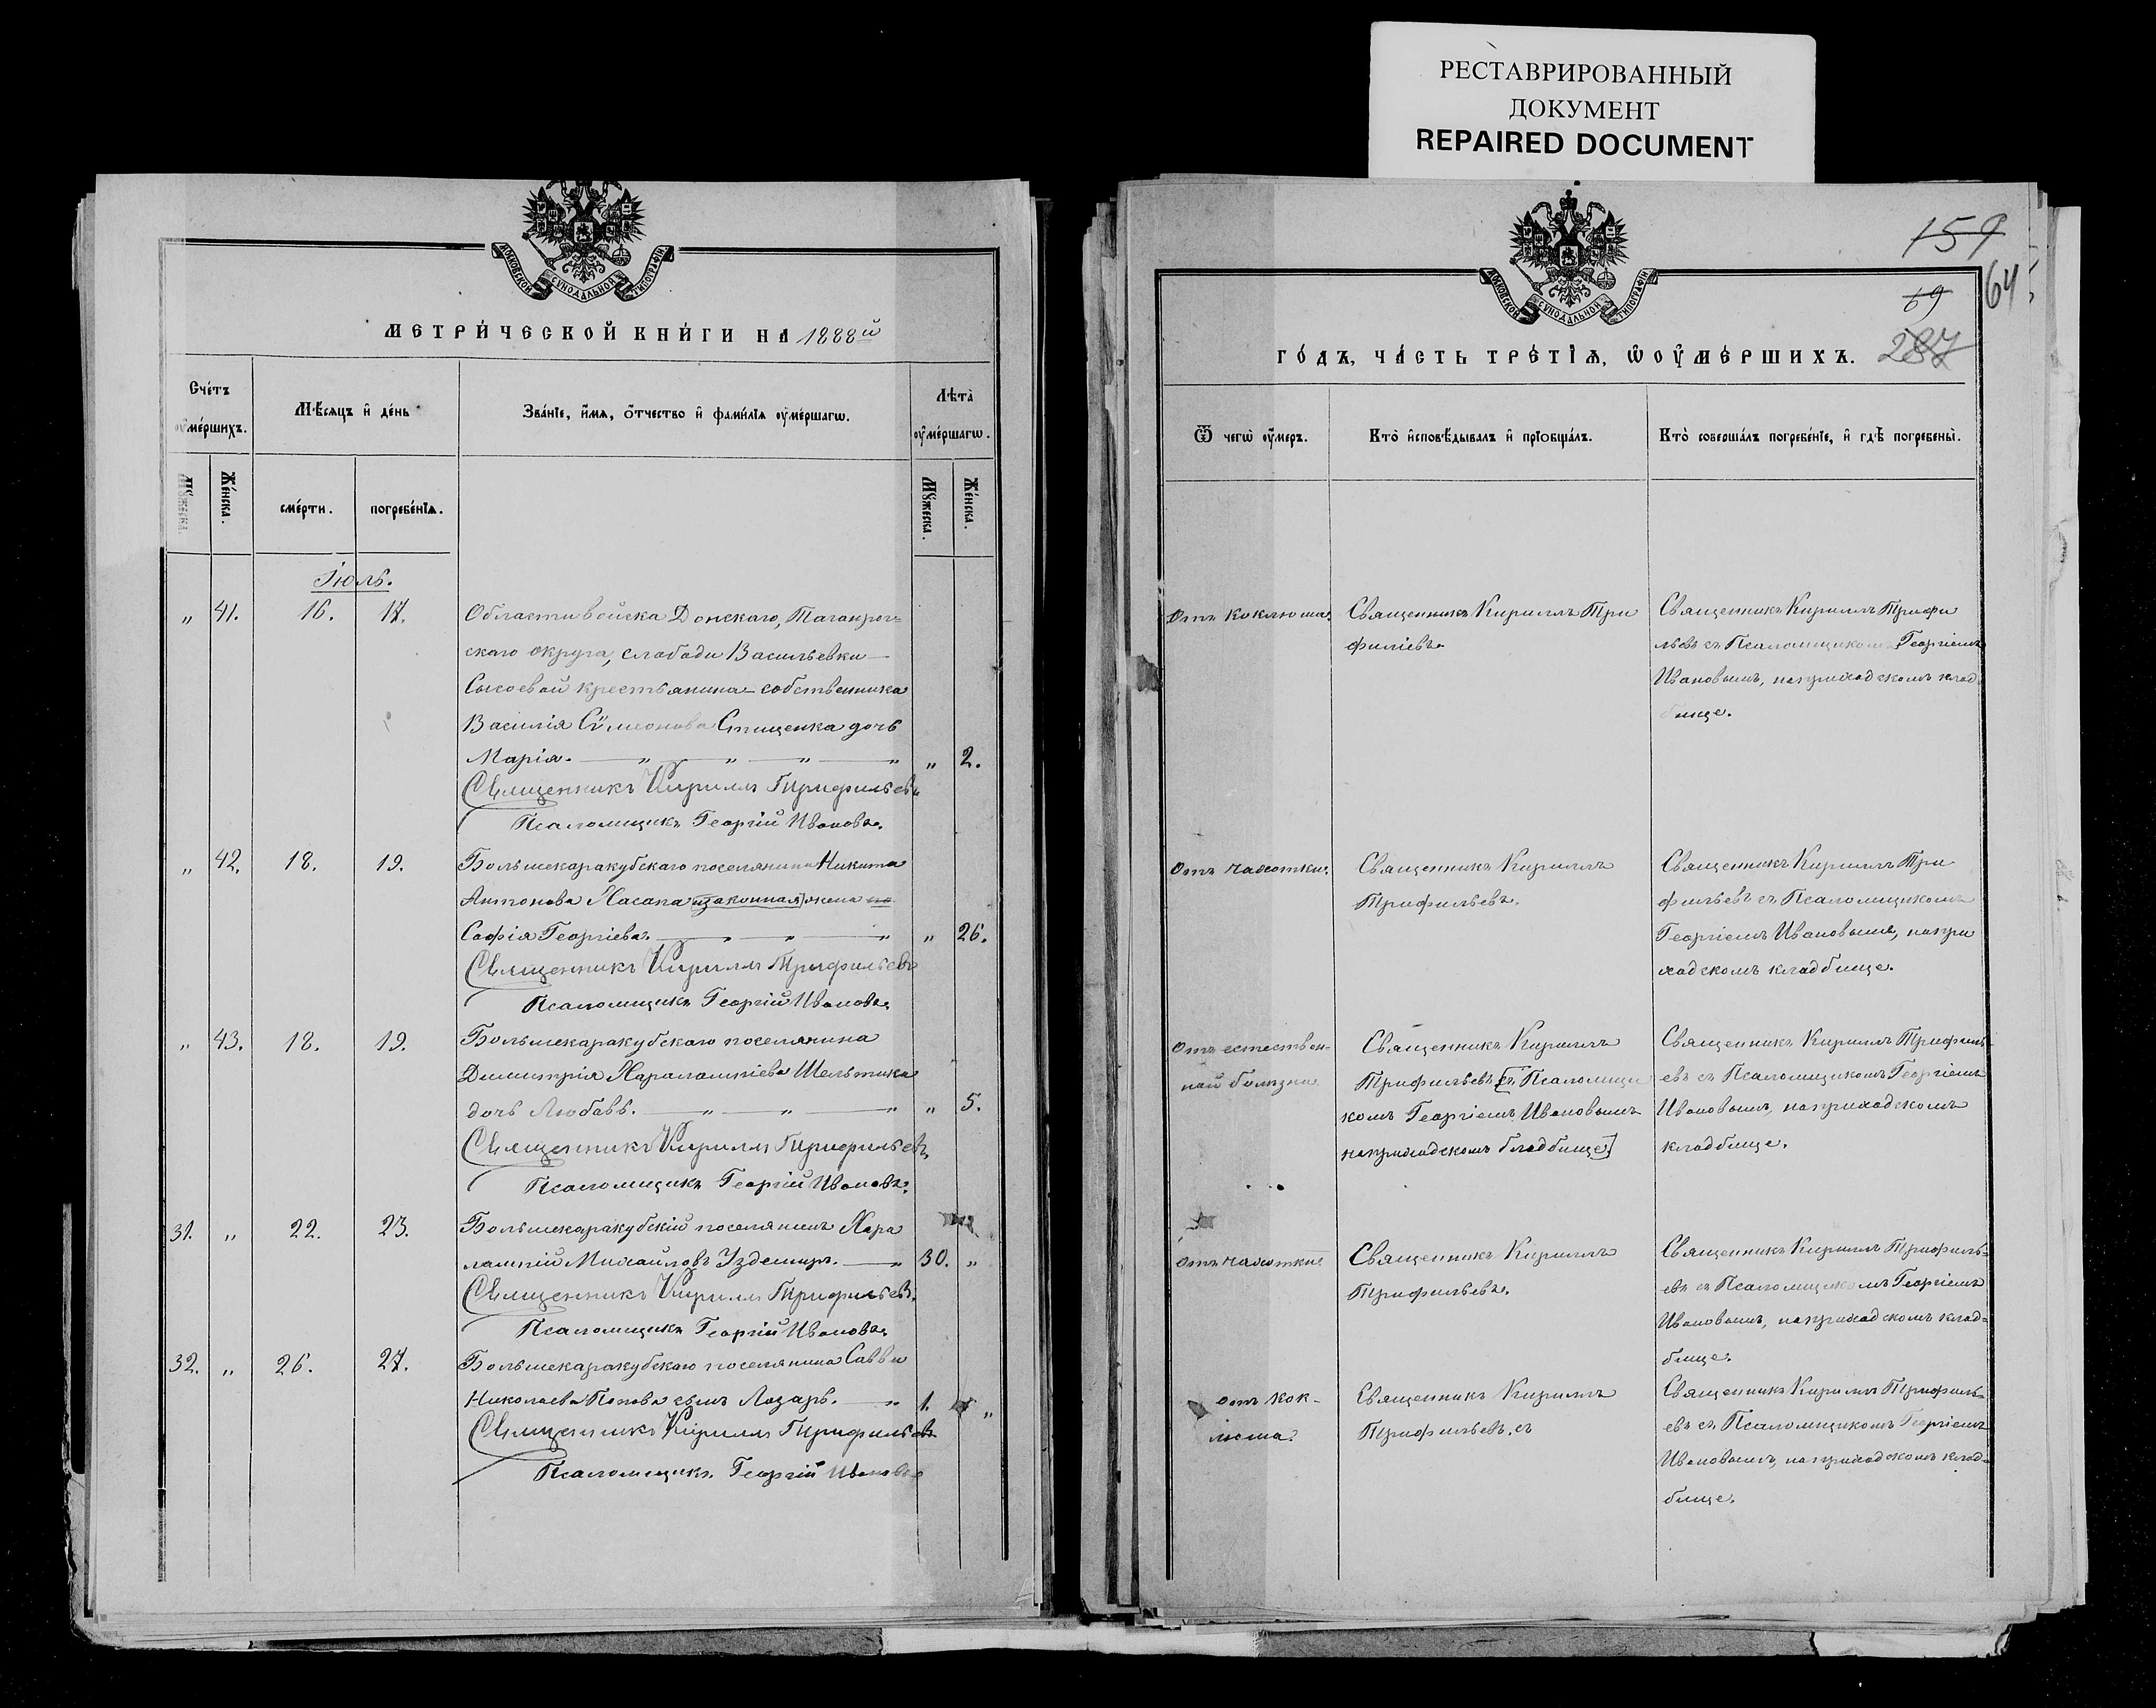 РЕСТАВРИРОВАННЫЙ
ДОКУМЕНТ
REPAIRED DOCUMENT
МОСКОВСКОЙ СѴНОДАЛЬНОЙ ТИПОГРАФІИ
МЕТРИ́ЧЕСКОЙ КНИ́ГИ НА 1888й
Сче́тъ оуме́ршихъ.
Мѣ́сяцъ и де́нь
Зва́нїе, и́мя, о́тчество и фами́лїя оуме́ршагѡ.
Лѣта̀ оуме́ршагѡ.
Мꙋ́жеска.
Же́нска.
сме́рти.
погребе́нїѧ.
Мꙋ́жеска.
Же́нска.
Іюль.
„ 41. 16. 17. Области войска Донскаго, Таганрог-
скаго округа, слободы Васильевки
Сысоевой крестьянина-собственника
Василія Сѵмеонова Спищенка дочь
Марія. „ „ „ „ „ 2.
Священникъ Кириллъ Трифильевъ
Псаломщикъ Георгій Ивановъ.
„ 42. 18. 19. Большекаракубскаго поселянина Никита
Антонова Хасапа законная жена
Софія Георгіева. „ „ „ „ 26.
Священникъ Кириллъ Трифильевъ
Псаломщикъ Георгій Ивановъ.
„ 43. 18. 19. Большекаракубскаго поселянина
Димитрія Харалампіева Шельтика
дочь Любовь. „ „ „ „ 5.
Священникъ Кириллъ Трифильевъ.
Псаломщикъ Георгій Ивановъ.
31. „ 22. 23. Большекаракубскій поселянинъ Хара
лампій Михайловъ Уздемиръ. „ 30. „
Священникъ Кириллъ Трифильевъ.
Псаломщикъ Георгій Ивановъ.
32. „ 26. 27. Большекаракубскаго поселянина Саввы
Николаева Попова сынъ Лазарь. „ 1. „
Священникъ Кириллъ Трифильевъ
Псаломщикъ Георгій Ивановъ
МОСКОВСКОЙ СѴНОДАЛЬНОЙ ТИПОГРАФІИ
159
64
69
287
ГО́ДЪ, ЧА́СТЬ ТРЕ́ТІѦ, Ѡ ОУМЕ́РШИХЪ.
Ѿ чегѡ̀ оу́меръ.
Кто̀ и́сповѣ́дывалъ и прїѡбща́лъ.
Кто̀ соверша́лъ погребе́нїе, и гдѣ̀ погребены̀.
Отъ коклюша. Священникъ Кириллъ Три
филіевъ.
Священникъ Кириллъ Трифи
льевъ съ Псаломщикомъ Георгіемъ
Ивановымъ, на приходскомъ клад
бище.
Отъ чахотки. Священникъ Кириллъ
Трифильевъ.
Священникъ Кириллъ Три
фильевъ съ Псаломщикомъ
Георгіемъ Ивановымъ, на при
ходскомъ кладбище.
Отъ естествен-
ной болѣзни.
Священникъ Кириллъ
Трифильевъ [съ Псаломщи
комъ Георгіемъ Ивановымъ
на приходскомъ кладбище]
Священникъ Кириллъ Трифиль
евъ съ Псаломщикомъ Георгіемъ
Ивановымъ, на приходскомъ
кладбище.
отъ чахотки. Священникъ Кириллъ
Трифильевъ.
Священникъ Кириллъ Трифиль-
евъ съ Псаломщикомъ Георгіемъ
Ивановымъ, на приходскомъ клад-
бище.
отъ кок-
люша.
Священникъ Кириллъ
Трифильевъ. съ
Священникъ Кириллъ Трифиль-
евъ съ Псаломщикомъ Георгіемъ
Ивановымъ, на приходскомъ клад-
бище.